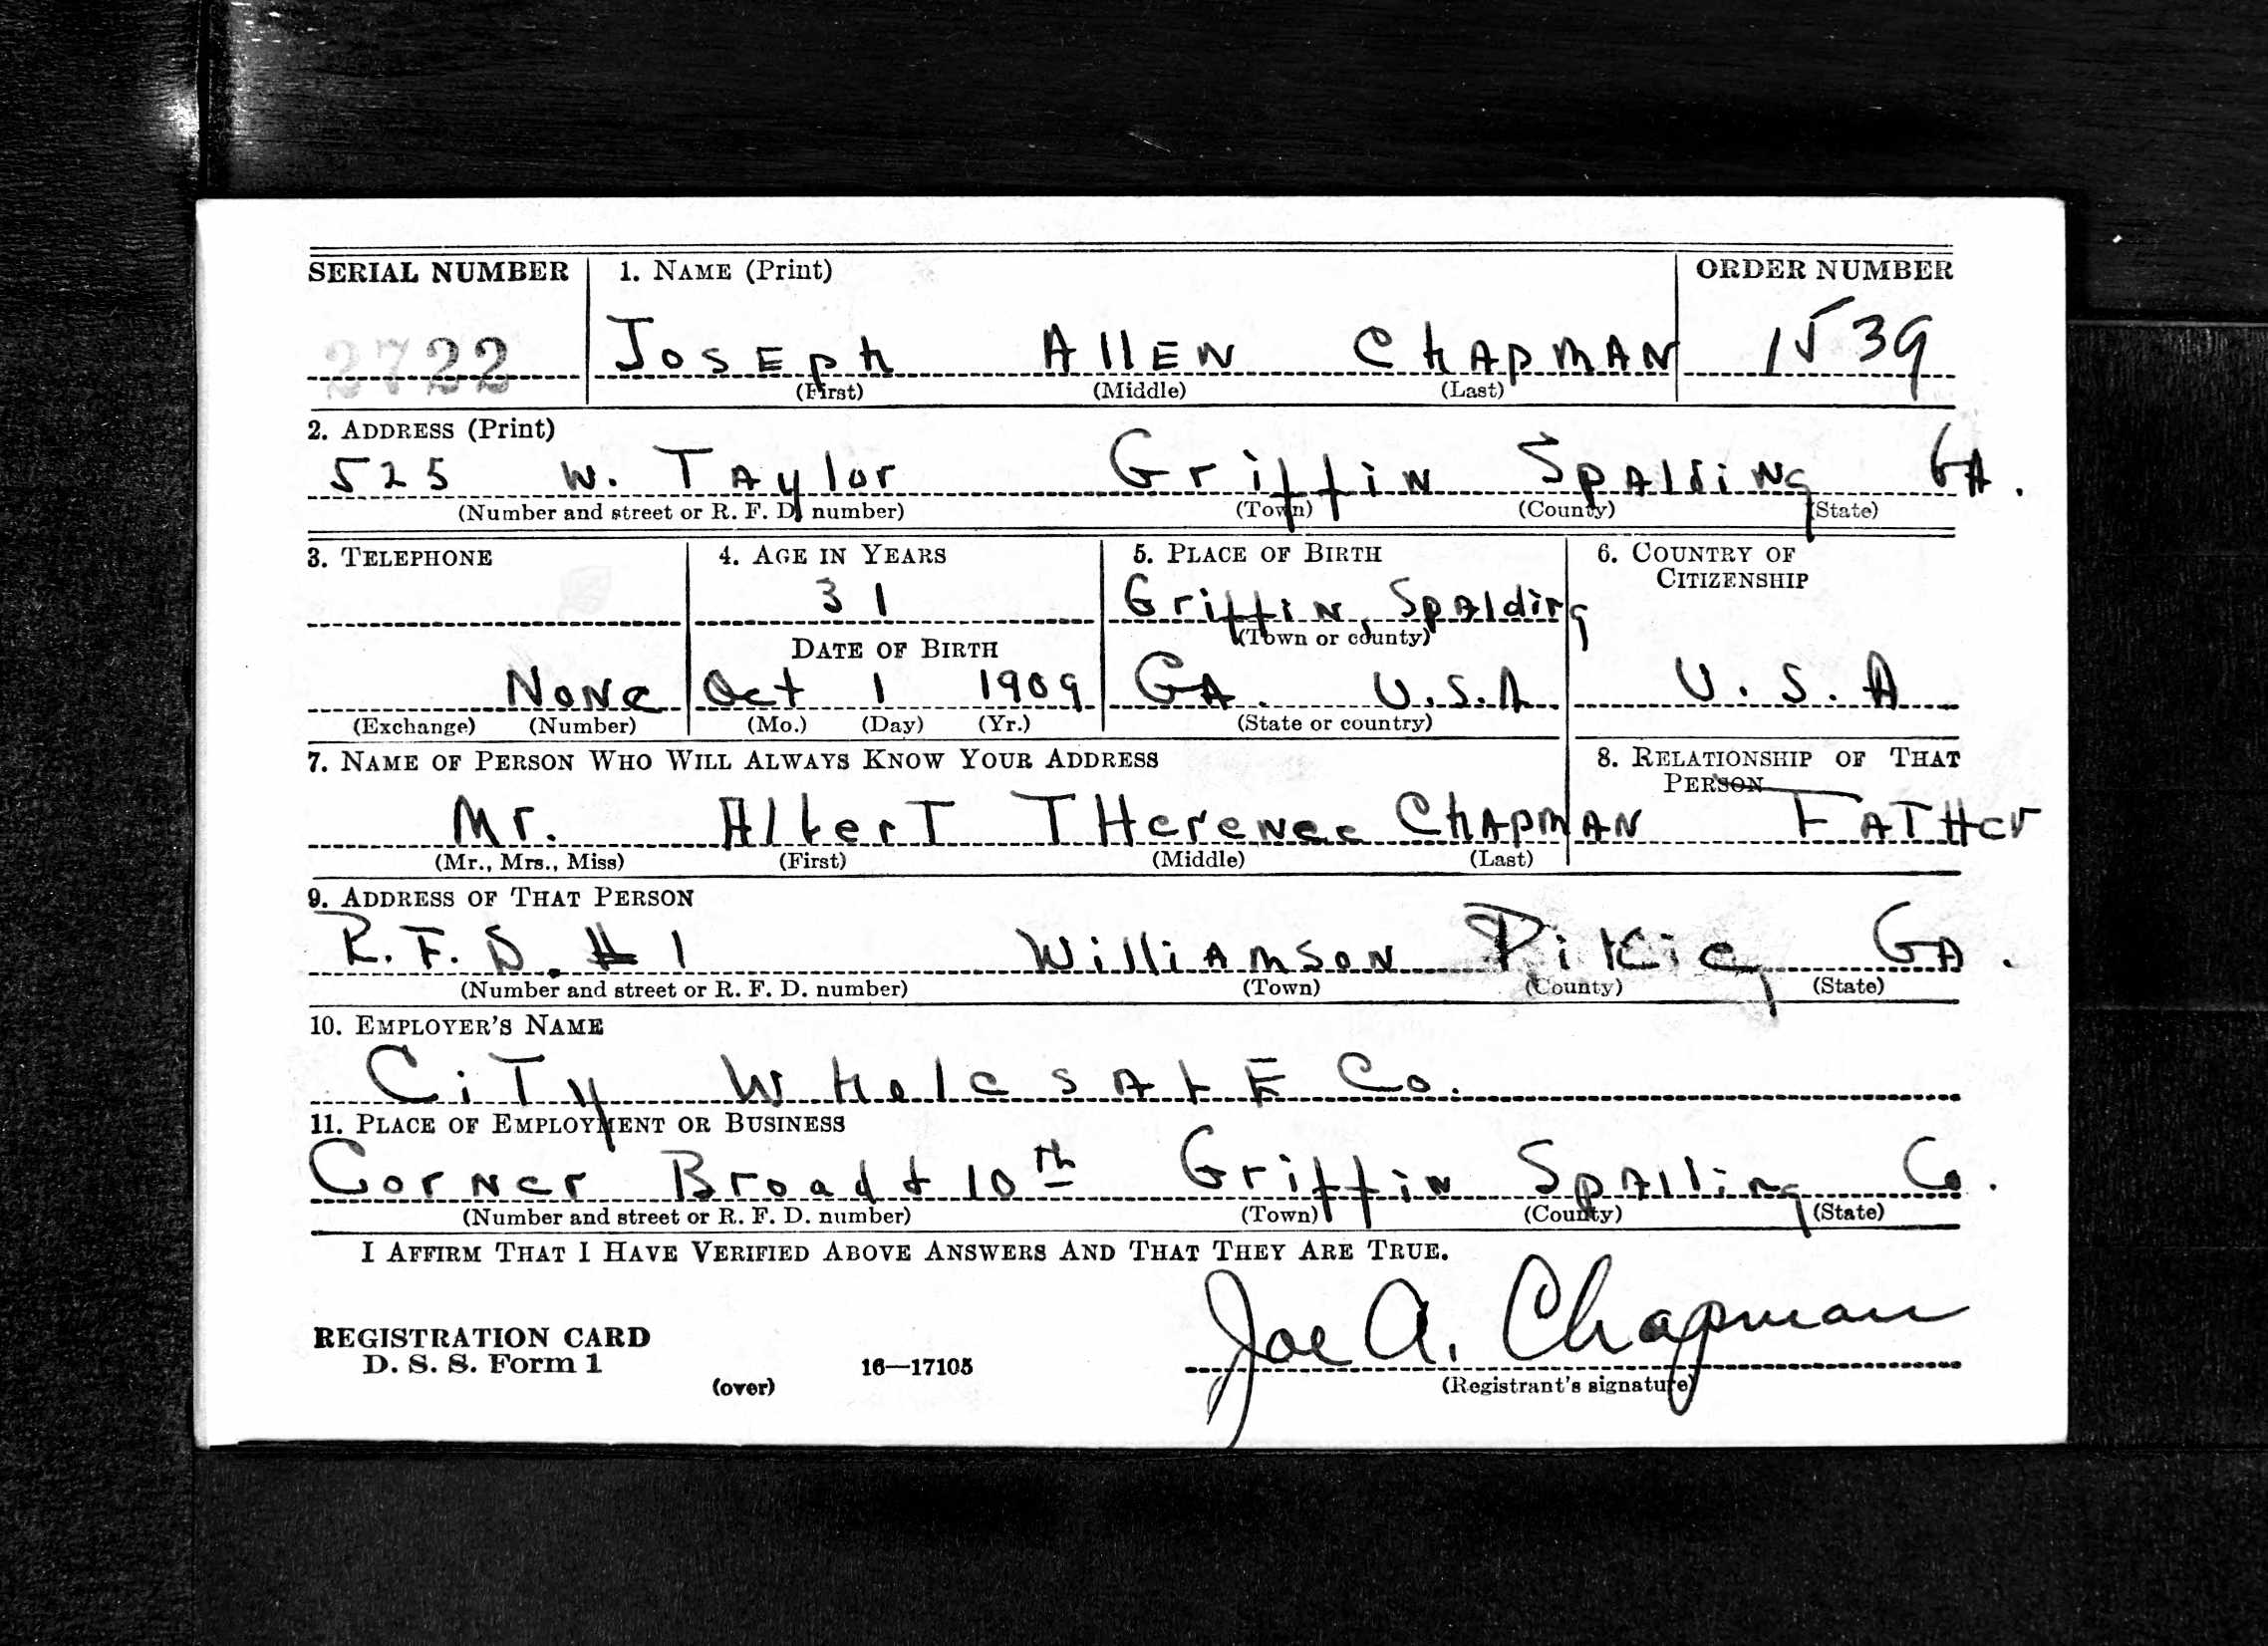 SERIAL NUMBER 1. NAME (Print) ORDER NUMBER
2722 JOSEph AllEN ChAPMAN 1539
(First) (Middle) (Last)
2. ADDRESS (Print)
525 W. TAylor Griffin SpAldiNg GA.
(Number and street or R. F. D. number) (Town) (County) (State)
3. TELEPHONE 4. AGE IN YEARS 5. PLACE OF BIRTH 6. COUNTRY OF CITIZENSHIP
31 GriffiN, SpAlding
(Town or county)
DATE OF BIRTH
NoNe Oct 1 1909 GA. U.S.A U.S.A
(Exchange) (Number) (Mo.) (Day) (Yr.) (State or country)
7. NAME OF PERSON WHO WILL ALWAYS KNOW YOUR ADDRESS 8. RELATIONSHIP OF THAT PERSON
Mr. AlberT THereNce ChAPMAN FATHer
(Mr., Mrs., Miss) (First) (Middle) (Last)
9. ADDRESS OF THAT PERSON
R.F.D. # 1 WilliAmsoN GA.
(Number and street or R. F. D. number) (Town) (County) (State)
10. EMPLOYER'S NAME
CiTy WholesAlE Co.
11. PLACE OF EMPLOYMENT OR BUSINESS
CorNer Broad & 10th Griffin SpAlding Co.
(Number and street or R. F. D. number) (Town) (County) (State)
I AFFIRM THAT I HAVE VERIFIED ABOVE ANSWERS AND THAT THEY ARE TRUE.
Joe A. Chapman
REGISTRATION CARD
D. S. S. Form 1 16—17105
(over) (Registrant's signature)